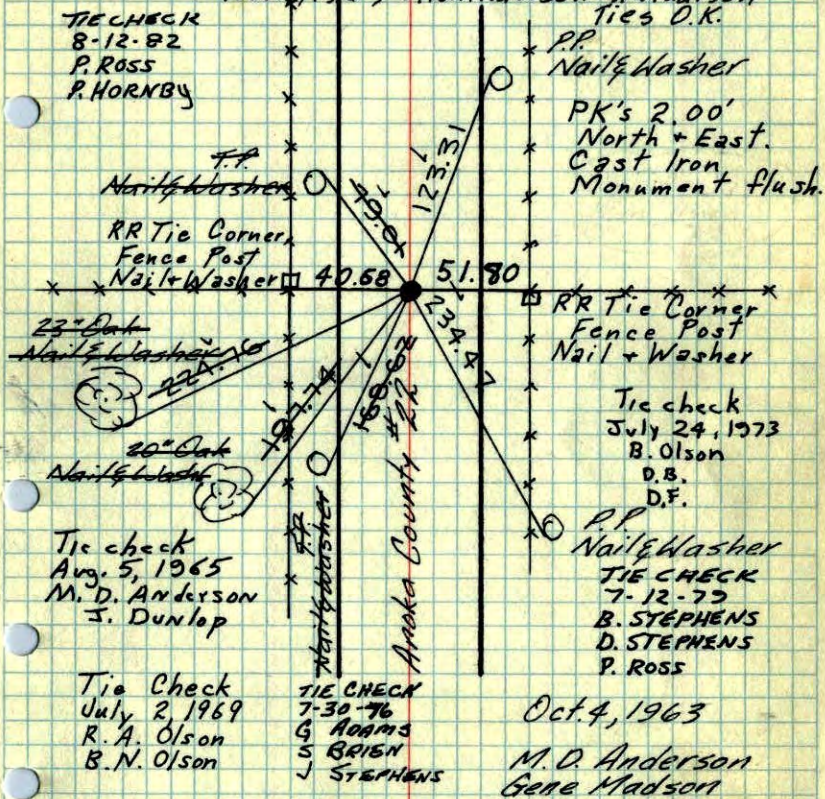 TIE CHECK
8-12-82
P. ROSS
P. HORNBY
Ties O.K.
P.P.
Nail & Washer
PK's 2.00'
North + East.
Cast Iron
Monument flush.
Nail & Washer
123.31
RR Tie Corner
Fence Post
Nail + Washer
40.68
51.80
234.47
RR Tie Corner
Fence Post
Nail + Washer
23" Oak
Nail & Washer
224.76
20" Oak
Nail & Wash
197.74
168.62
Anoka County #22
Nail & Washer
Tie check
July 24, 1973
B. Olson
D.B.
D.F.
P.P.
Nail & Washer
TIE CHECK
7-12-79
B. STEPHENS
D. STEPHENS
P. ROSS
Tie check
Aug. 5, 1965
M. D. Anderson
J. Dunlop
Tie Check
July 2, 1969
R. A. Olson
B. N. Olson
TIE CHECK
7-30-76
G ADAMS
S BRIEN
J STEPHENS
Oct. 4, 1963
M. D. Anderson
Gene Madson